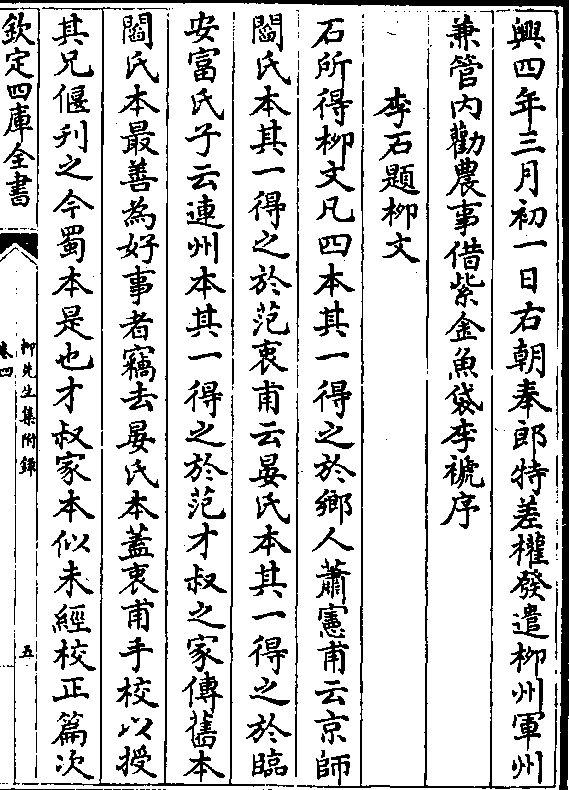 興四年三月初一日右朝奉郎特差權發遣柳州軍州
兼管内勸農事借紫金魚袋李褫序
李石題柳文
石所得柳文凡四本其一得之於鄉人蕭憲甫云京師
閻氏本其一得之於范衷甫云晏氏本其一得之於臨
安富氏子云連州本其一得之於范才叔之家傳舊本
閻氏本最善為好事者竊去晏氏本蓋衷甫手校以授
其兄偃刋之今蜀本是也才叔家本似未經校正篇次
欽定四庫全書
柳先生集附錄
卷四
五